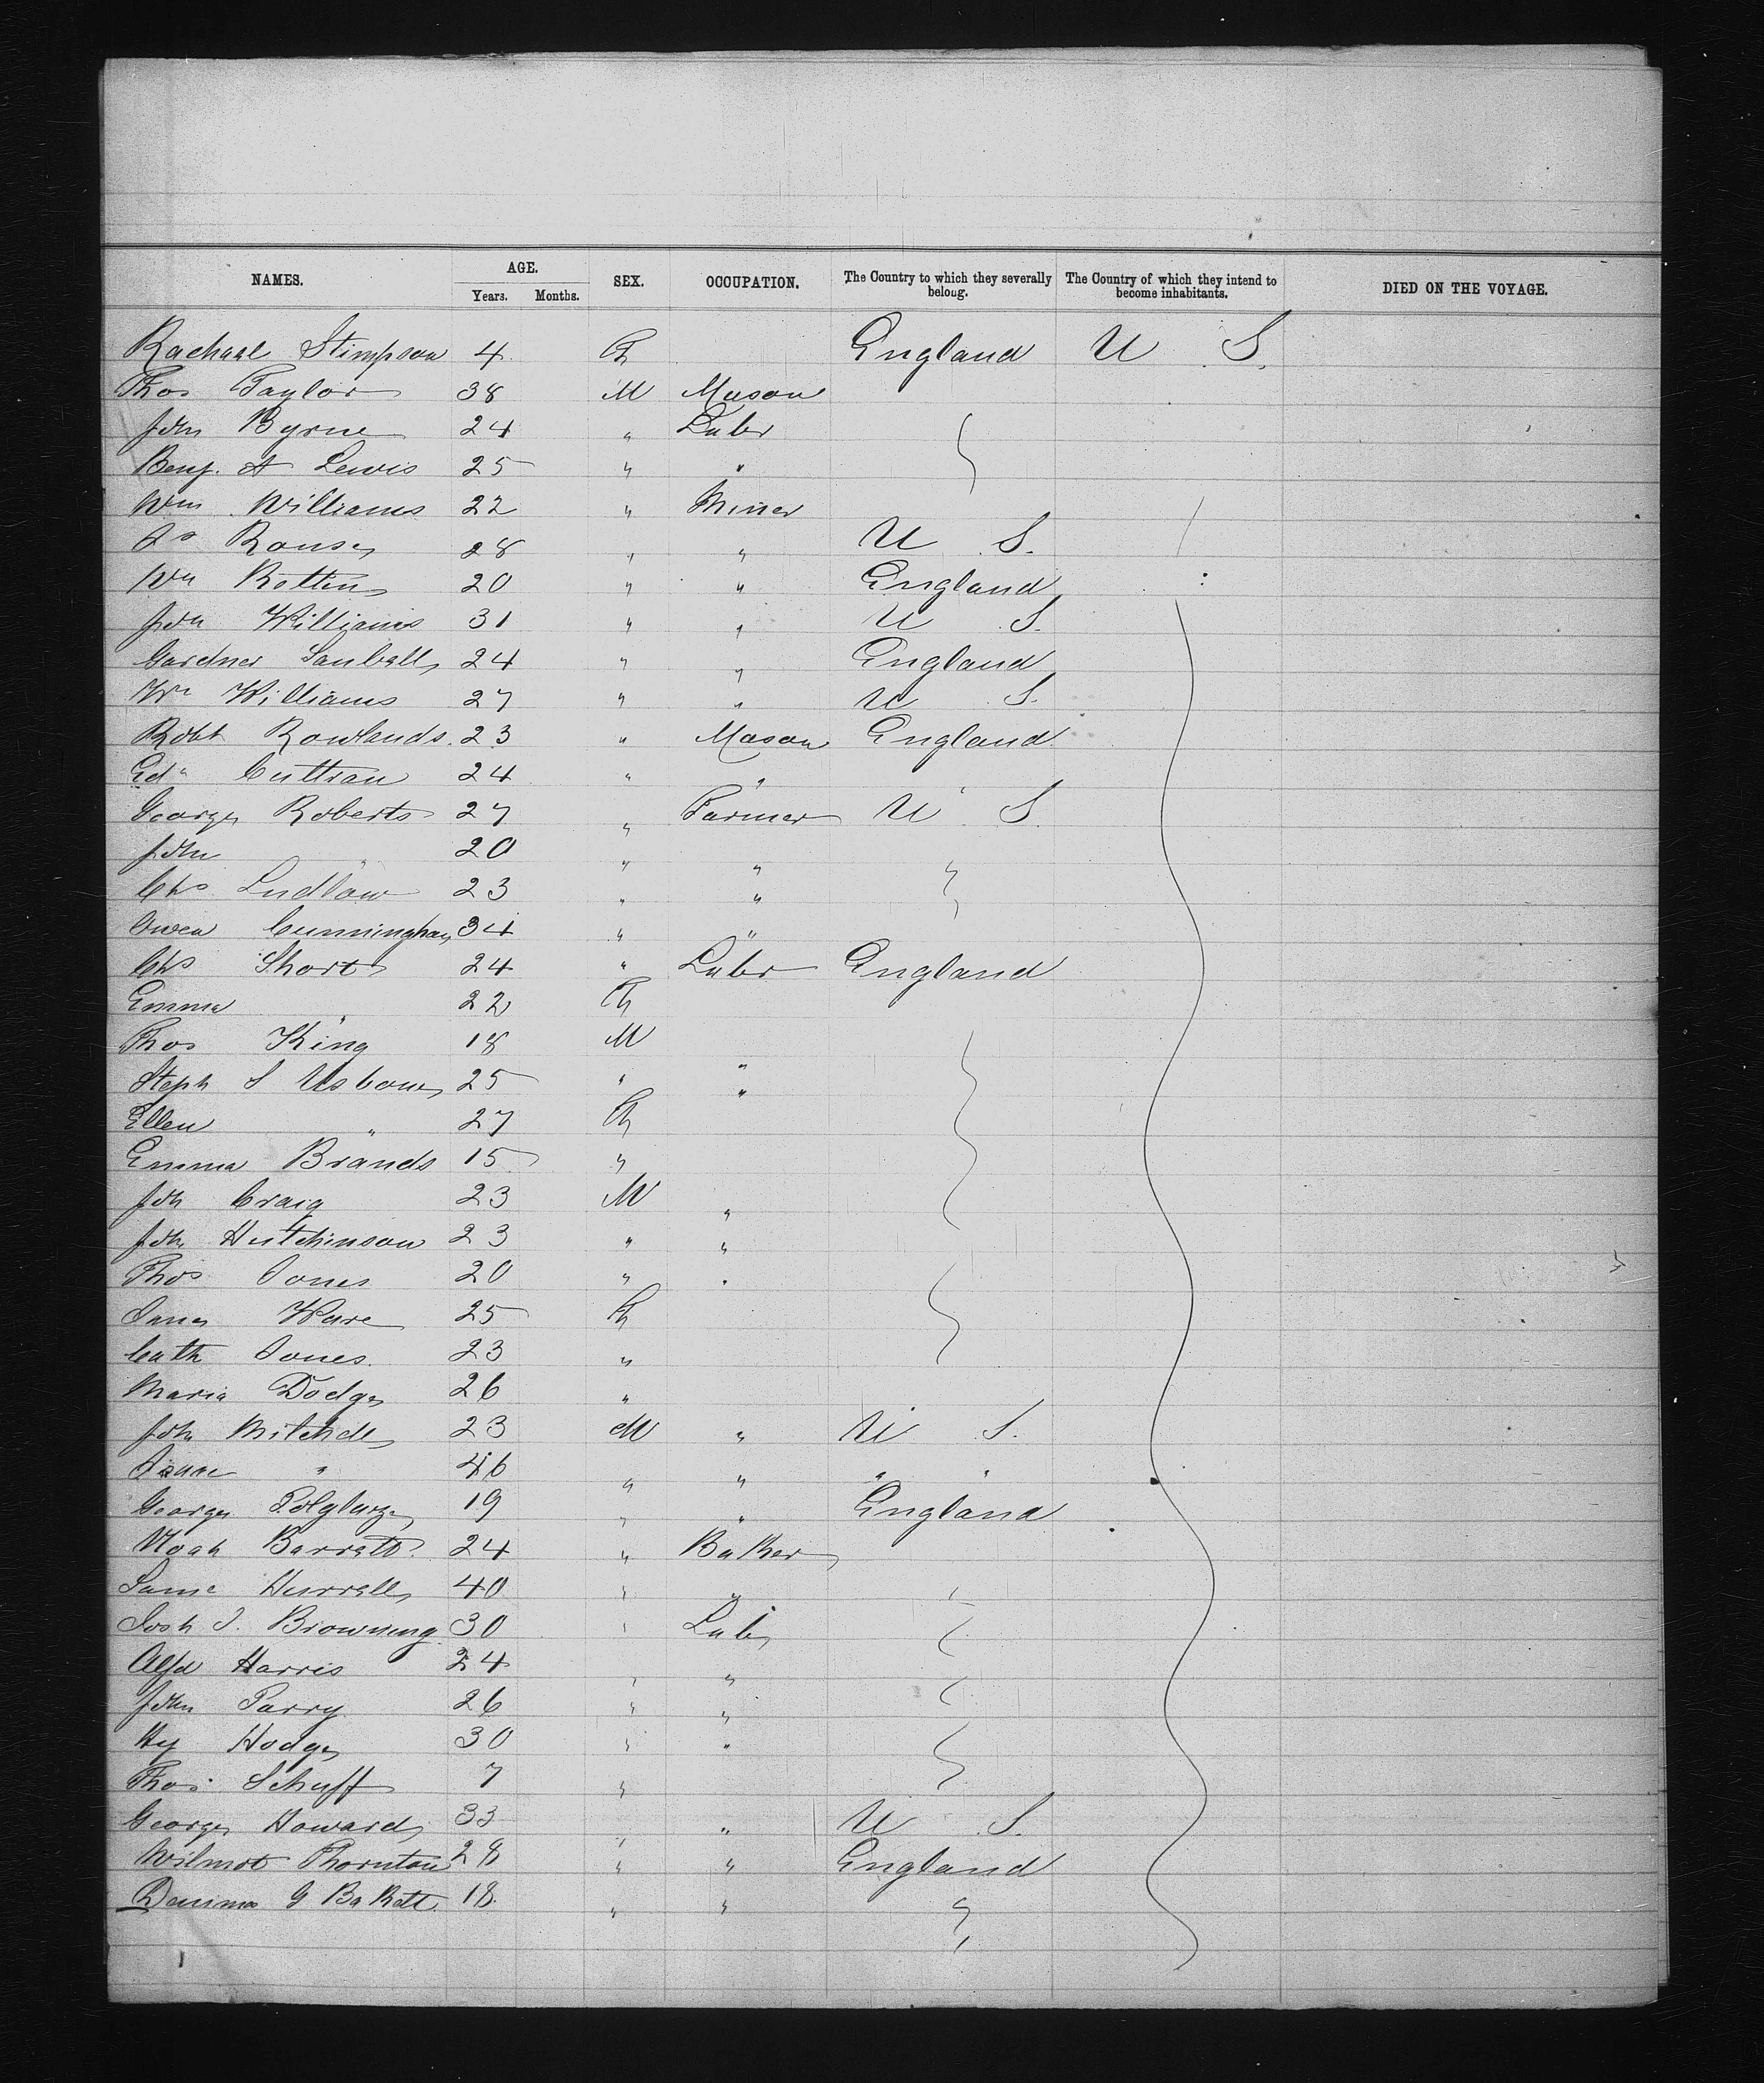 NAMES. AGE. SEX. OCCUPATION. The Country to which they severally belong. The Country of which they intend to become inhabitants. DIED ON THE VOYAGE.
Years. Months.
Rachael Stimpson 4 F England U S.
Thos Taylor 38 M Mason
John Byrne 24 " Labr
Benj. A Lewis 25 " "
Wm Williams 22 " Miner
Rouse 28 " " U S.
Wm 20 " " England
John Williams 31 " " U S.
Gardner 24 " " England
Wm Williams 27 " " U S.
Robt Rowlands. 23 " Mason England
24 " "
George Roberts 27 " Farmer U S
John " 20 " "
Chs Ludlow 23 " "
Owen Cunningham 34 " "
Chs Short 24 " Labr England
Emma " 22 F
Thos King 18 M "
Steph S Usborne 25 " "
Ellen " 27 F
Emma Brands 15 "
John Craig 23 M "
John Hutchinson 23 " "
Thos Jones 20 " "
Jane Ware 25 F
Cath Jones. 23 "
Maria Dodge 26 "
John Mitchell 23 M " U S.
Isaac " 46 " " " "
George Polglaze 19 " " England
Noah Barratt 24 " Baker
Hurrell 40 " "
Josh J. Browning 30 " Labr
Alfd Harris 24 " "
John Parry 26 " "
Hy Hodge 30 " "
Thos. Schuff 7 "
George Howard 33 " " U S.
Wilmot Thornton 28 " " England
G 18. " " "